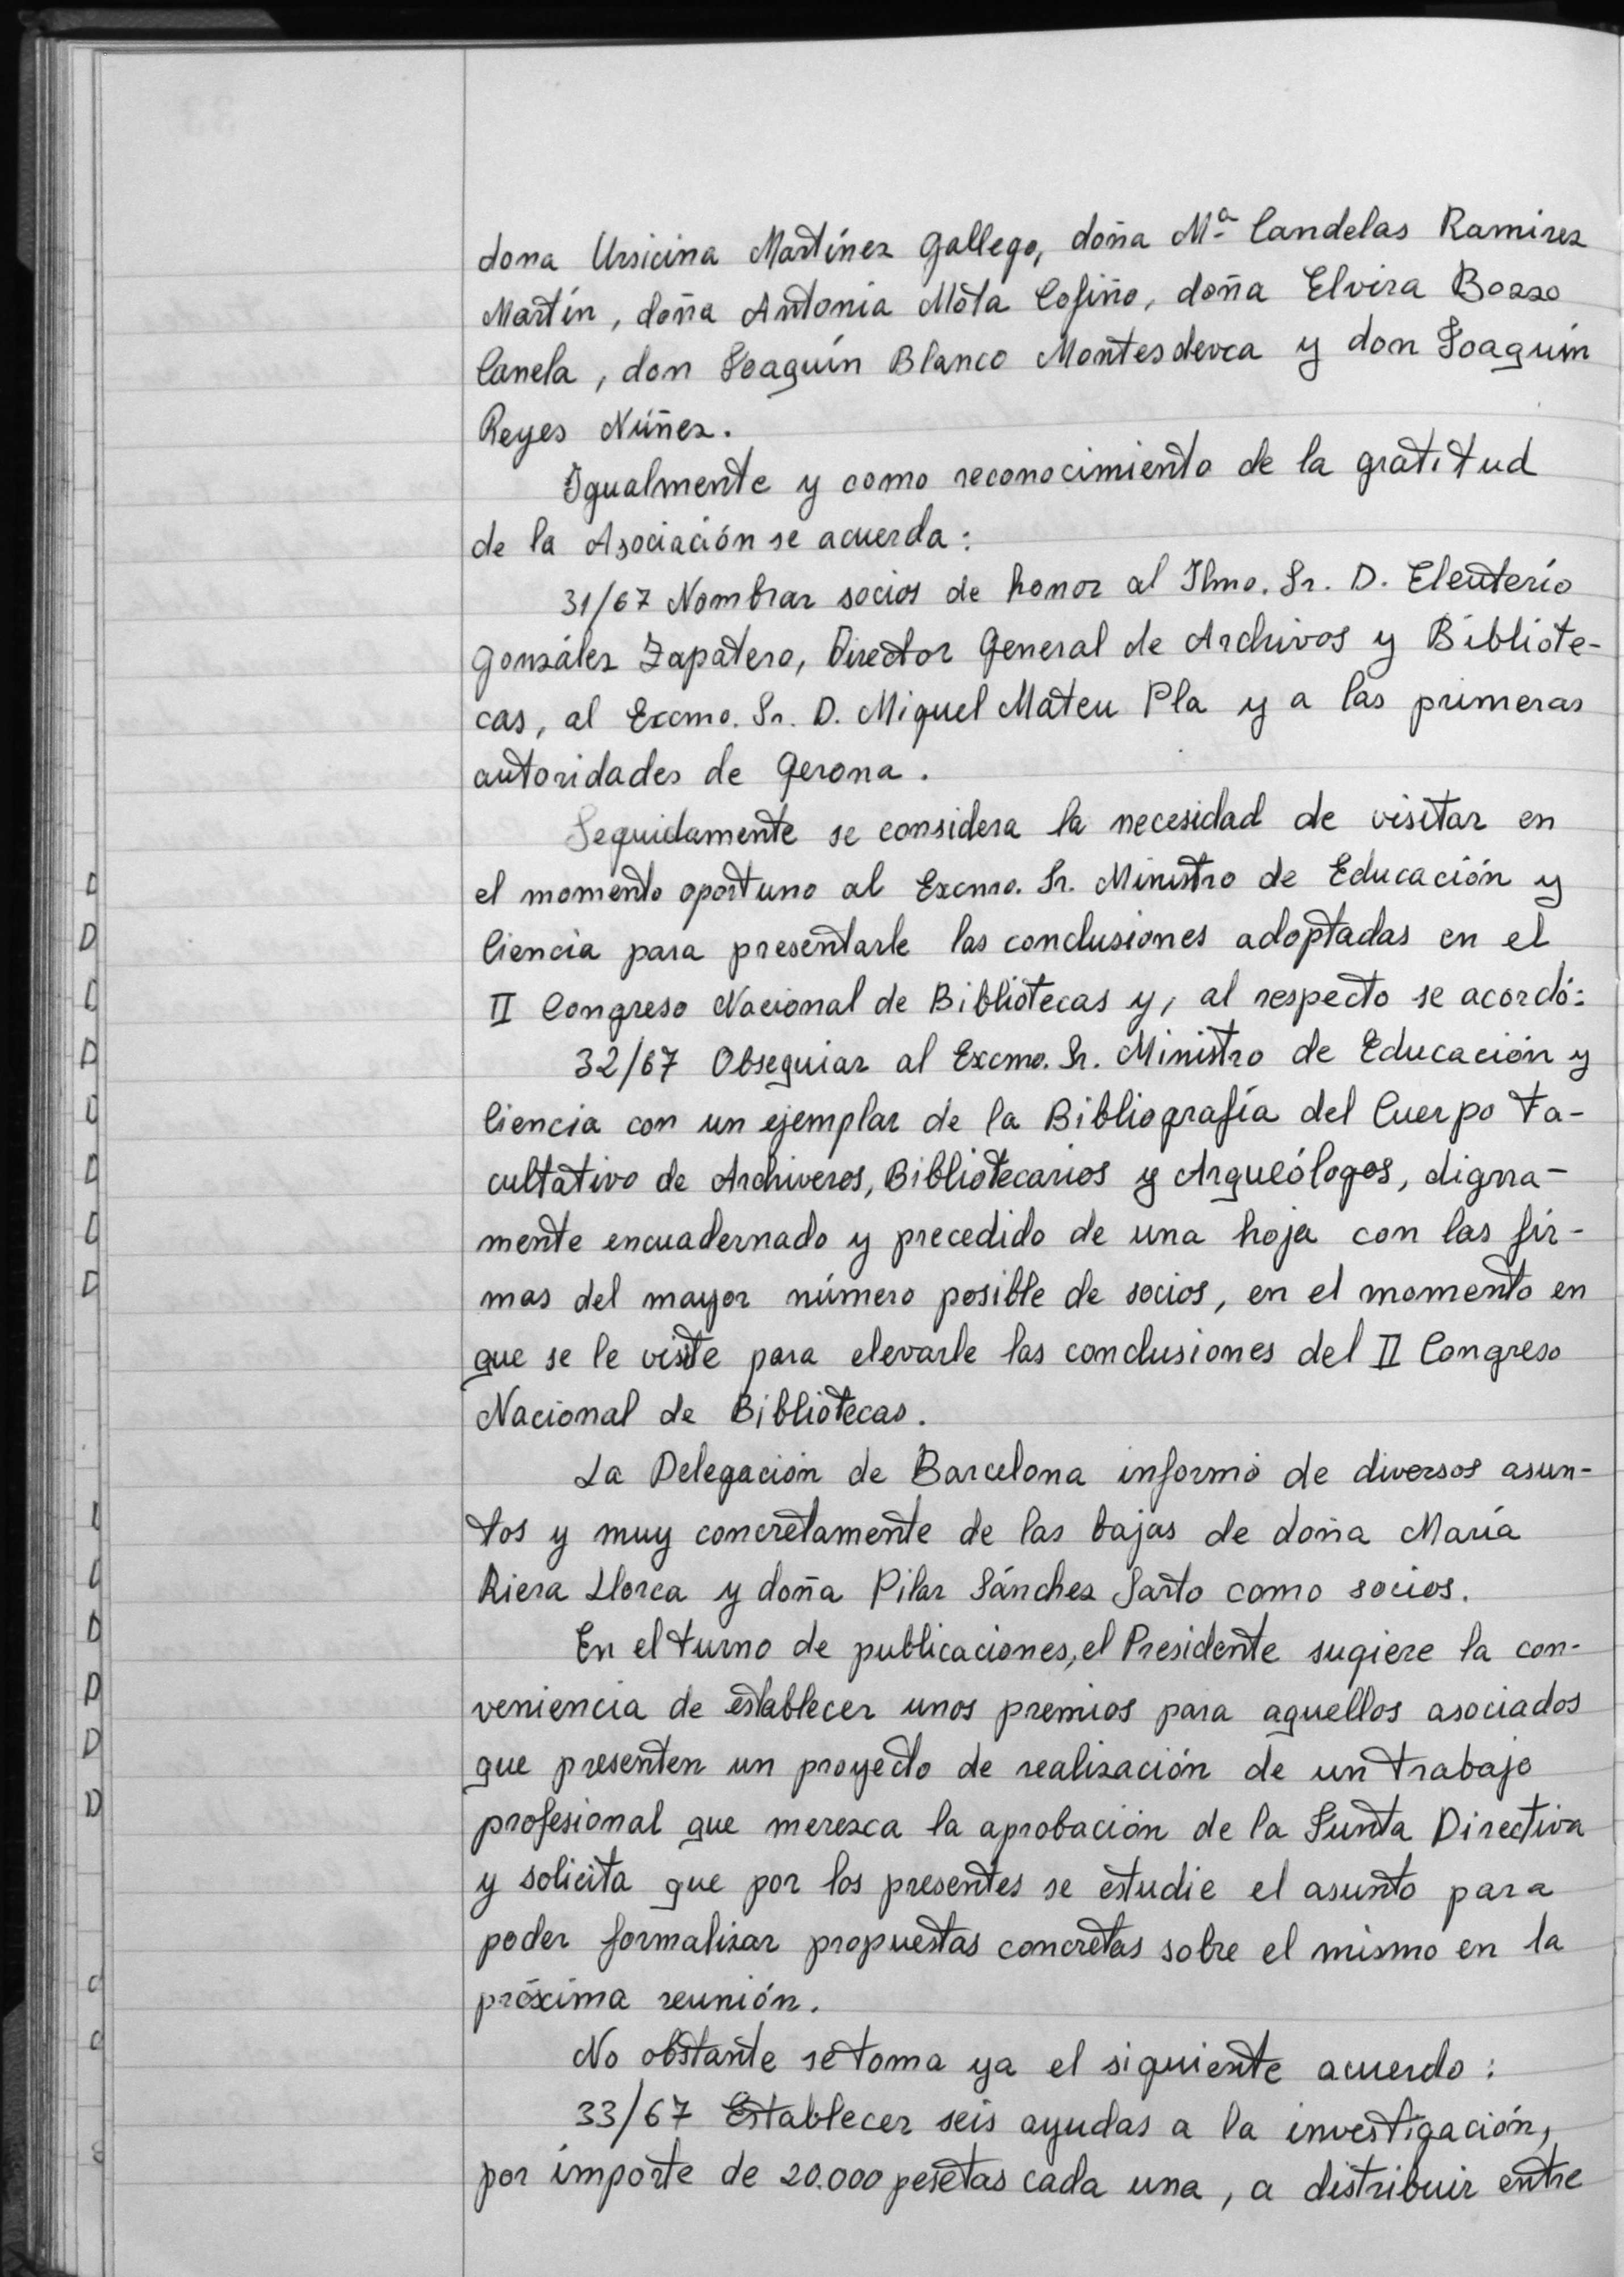 dona Ursicina Martínez Gallego, doña Mª Candelas Ramirez
Martín, doña Antonia Mota Cofiño, doña Elvira Bozzo
Canela, don Joaquín Blanco Montesdeoca y don Joaquín
Reyes Núñez.
Igualmente y como reconocimiento de la gratitud
de la Asociación se acuerda:
31/67 Nombrar socios de honor al Ilmo. Sr. D. Eleuterio
González Zapatero, Director General de Archivos y Bibliote-
cas, al Excmo. Sr. D. Miguel Mateu Pla y a las primeras
autoridades de Gerona.
Seguidamente se considera la necesidad de visitar en
el momento oportuno al Excmo. Sr. Ministro de Educación y
Ciencia para presentarle las conclusiones adoptadas en el
II Congreso Nacional de Bibliotecas y, al respecto se acordó:
32/67 Obsequiar al Excmo. Sr. Ministro de Educación y
Ciencia con un ejemplar de la Bibliografía del Cuerpo Fa-
cultativo de Archiveros, Bibliotecarios y Arqueólogos, digna-
mente encuadernado y precedido de una hoja con las fir-
mas del mayor número posible de socios, en el momento en
que se le visite para elevarle las conclusiones del II Congreso
Nacional de Bibliotecas.
La Delegación de Barcelona informó de diversos asun-
tos y muy concretamente de las bajas de doña María
Riera Llorca y doña Pilar Sánchez Sarto como socios.
En el turno de publicaciones, el Presidente sugiere la con-
veniencia de establecer unos premios para aquellos asociados
que presenten un proyecto de realización de un trabajo
profesional que merezca la aprobación de la Junta Directiva
y solicita que por los presentes se estudie el asunto para
poder formalizar propuestas concretas sobre el mismo en la
próxima reunión.
No obstante se toma ya el siguiente acuerdo:
33/67 Establecer seis ayudas a la investigación,
por importe de 20.000 pesetas cada una, a distribuir entre